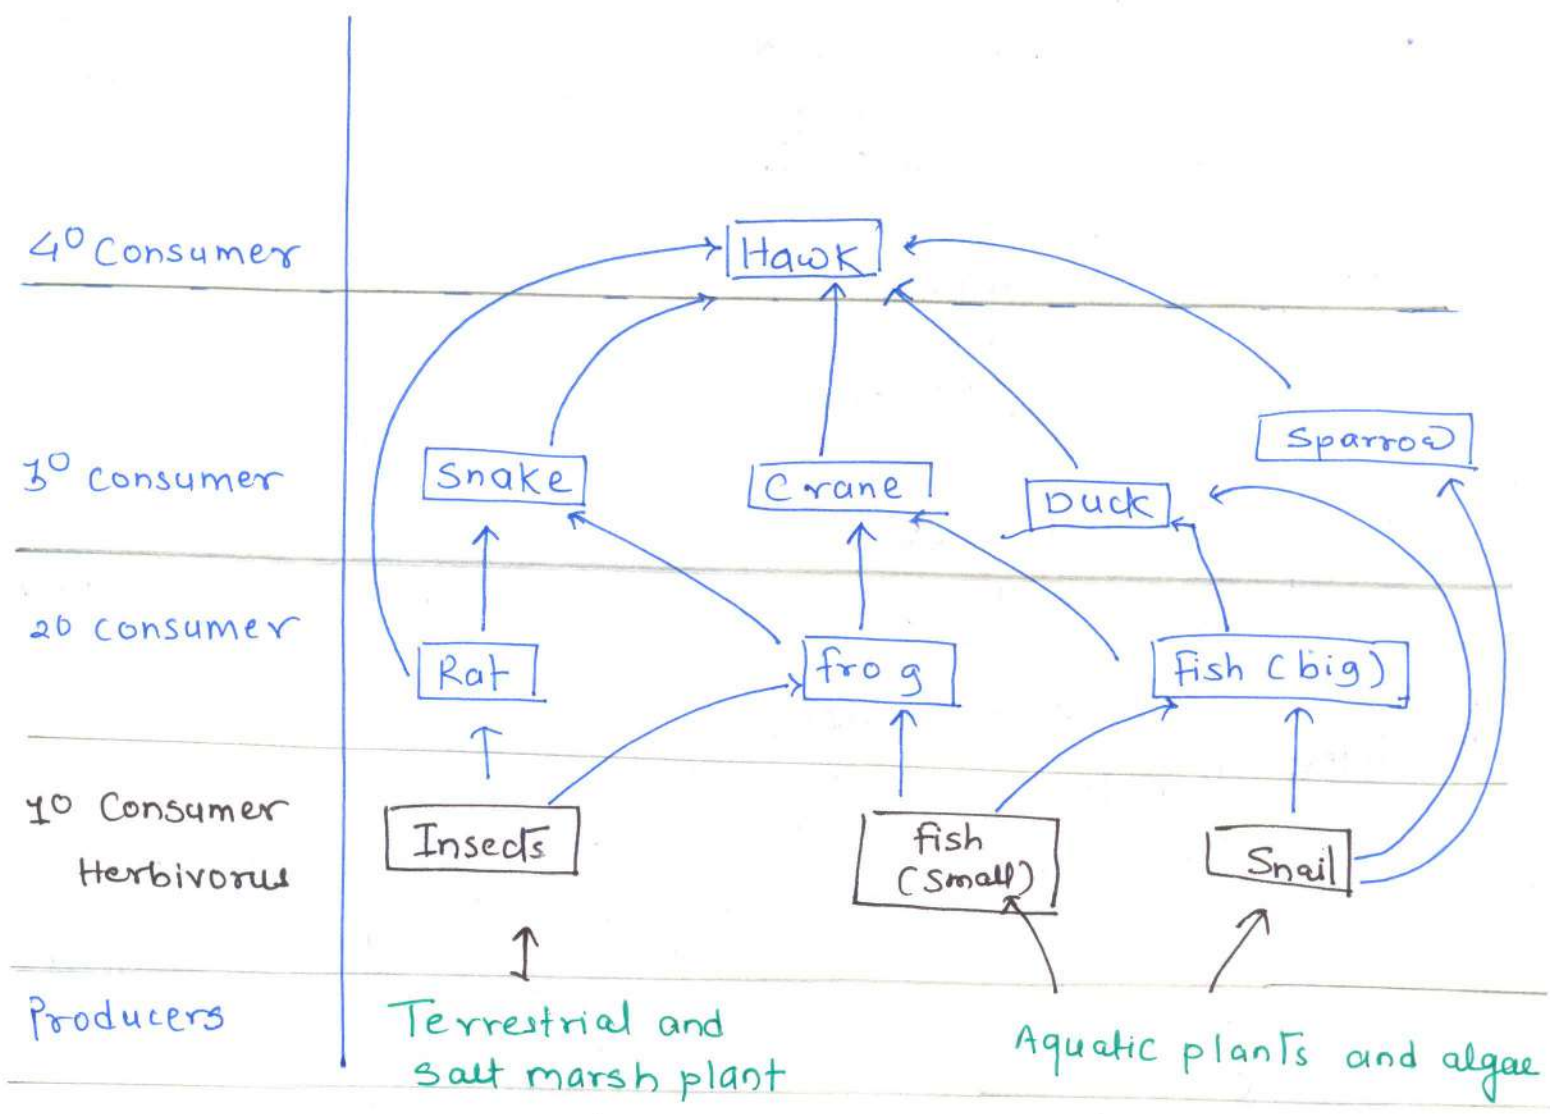 4° Consumer
Hawk
3° consumer
Snake
Crane
Duck
Sparrow
2° consumer
Rat
frog
fish (big)
1° Consumer
Herbivorus
Insects
fish
(small)
Snail
Producers
Terrestrial and
salt marsh plant
Aquatic plants and algae